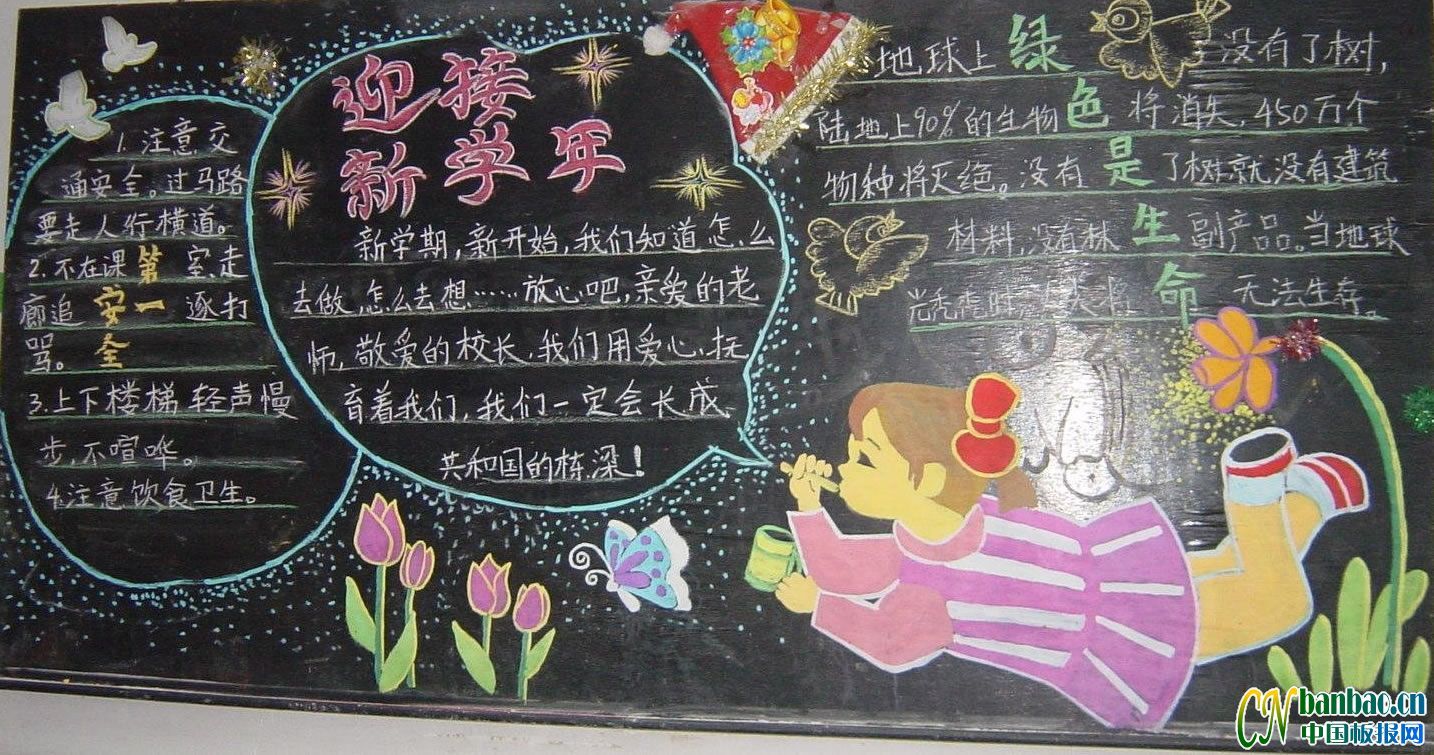 1.注意交
通安全。过马路
要走人行横道。
2.不在课室走
廊追逐打
骂。
3.上下楼梯轻声慢
步,不喧哗。
4.注意饮食卫生。
安全第一
迎接
新学年
新学期,新开始,我们知道怎么
去做,怎么去想……放心吧,亲爱的老
师,敬爱的校长,我们用爱心、抚
育着我们,我们一定会长成、
共和国的栋深!
绿色是生命
地球上没有了树,
陆地上90%的生物将消失,450万个
物种将灭绝。没有了树就没有建筑
材料,没有林副产品。当地球
光秃秃时 无法生存。
CN banbao.cn
中国板报网